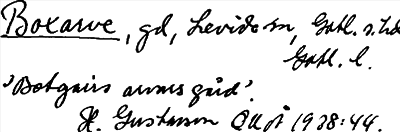 Boxarve, gd, Levide sn, Gotl. s. hd
Gotl. l.
'Botgairs arvas gård'.
H. Gustavson 1938:44.